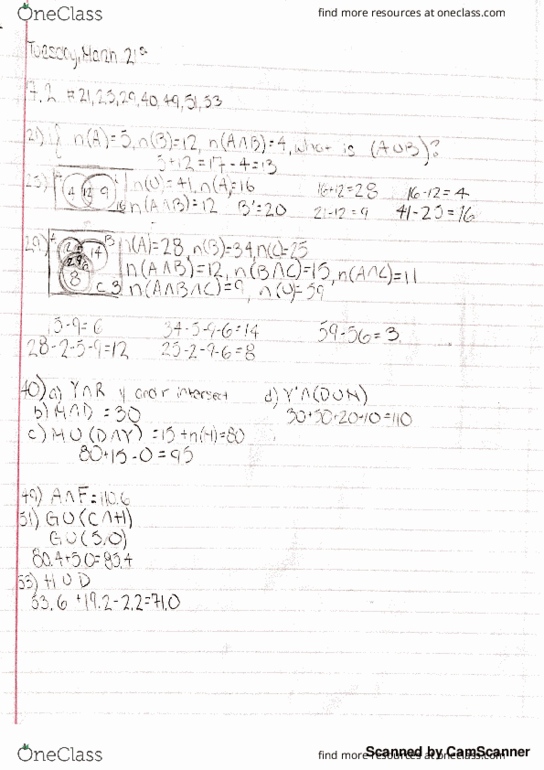 OneClass
find more resources at oneclass.com
Tuesday, March 21st
7.2 #21,25,29,40,49,51,53
21) if n(A)=5, n(B)=12, n(A∩B)=4, what is (A∪B)?
5+12=17-4=13
25) 4 12 9 16 n(U)=41, n(A)=16
16+12=28 16-12=4
n(A∩B)=12 B'=20
21-12=9 41-25=16
29) A B 14 8 C 3 n(A)=28 n(B)=34, n(C)=25
n(A∩B)=12, n(B∩C)=15, n(A∩C)=11
n(A∩B∩C)=9, n(U)=59
15-9=6 34-5-9-6=14 59-56=3
28-2-5-9=12 25-2-9-6=8
40) a) Y∩R y and r intersect d) Y'∩(D∪N)
b) M∩D =30
c) M∪(D∩Y) =15+n(M)=80
80+15-0=95
49) A∩F=110.6
51) G∪(C∩H)
G∪(5.0)
80.4+5.0=85.4
53) H∪D
53.6+19.2-2.2=71.0
OneClass
find more resources at oneclass.com
Scanned by CamScanner